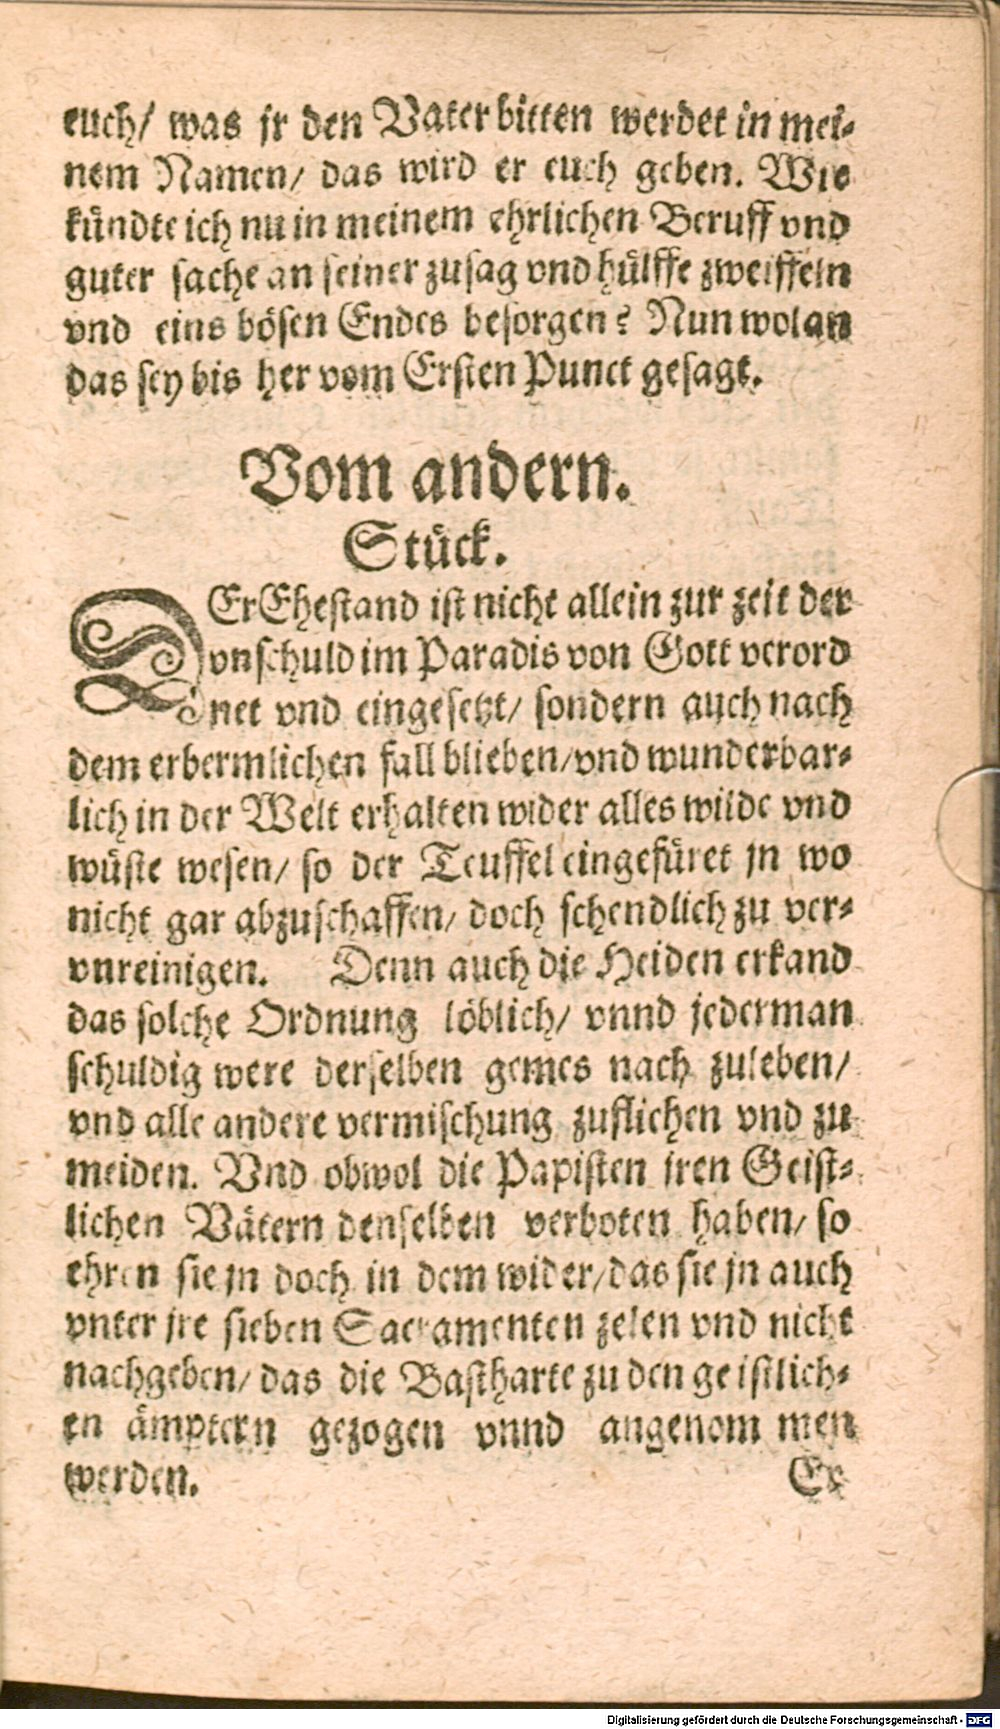 euch/ was jr den Vater bitten werdet in mei⸗
nem Namen/ das wird er euch geben. Wie
kündte ich nu in meinem ehrlichen Beruff vnd
guter sache an seiner zusag vnd hülffe zweiffeln
vnd eins bösen Endes besorgen? Nun wolan
das sey bis her vom Ersten Punct gesagt.
Vom andern.
Stück.
DEr Ehestand ist nicht allein zur zeit der
vnschuld im Paradis von Gott verord
net vnd eingesetzt/ sondern auch nach
dem erbermlichen fall blieben/ vnd wunderbar⸗
lich in der Welt erhalten wider alles wilde vnd
wüste wesen/ so der Teuffel eingefüret jn wo
nicht gar abzuschaffen/ doch schendlich zu ver⸗
vnreinigen. Denn auch die Heiden erkand
das solche Ordnung löblich/ vnnd jederman
schuldig were derselben gemes nach zuleben/
vnd alle andere vermischung zuflichen vnd zu
meiden. Vnd obwol die Papisten jren Geist⸗
lichen Vätern denselben verboten haben/ so
ehren sie jn doch in dem wider/ das sie jn auch
vnter jre sieben Sacramenten zelen vnd nicht
nachgeben/ das die Bastharte zu den geistlich⸗
en ämptern gezogen vnnd angenom men
werden. Er
Digitalisierung gefördert durch die Deutsche Forschungsgemeinschaft - DFG